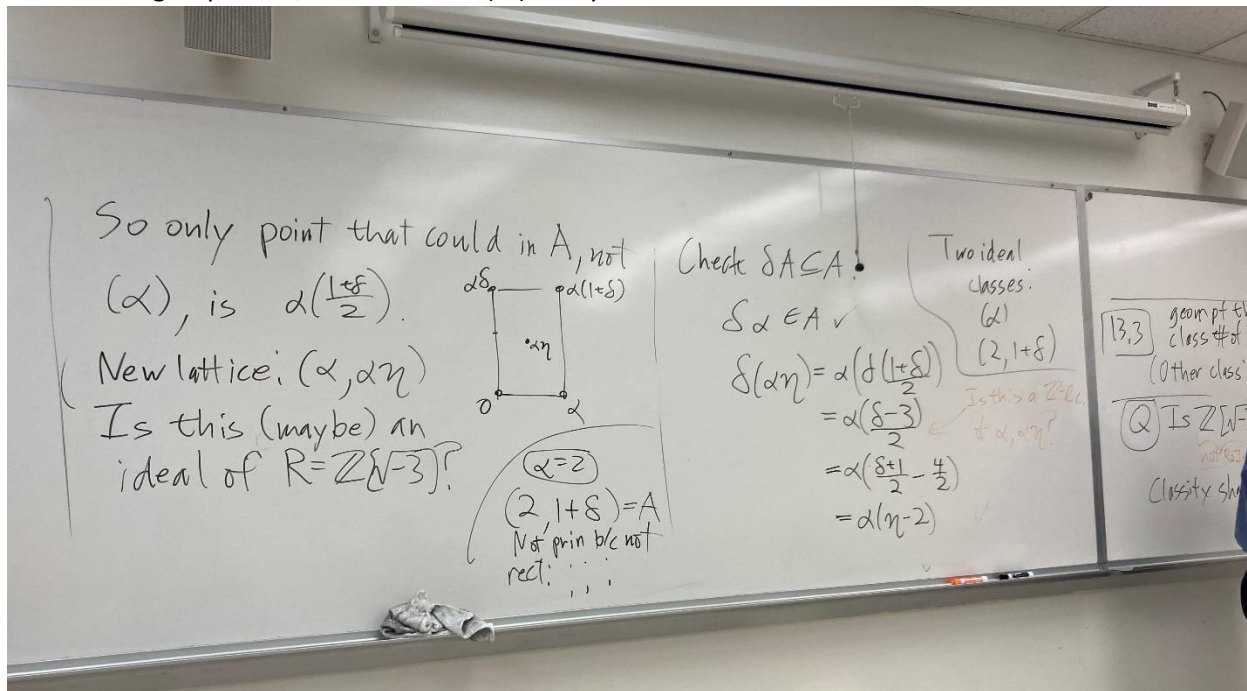 So only point that could in A, not
(α), is α((1+δ)/2).
New lattice: (α, αη)
Is this (maybe) an
ideal of R=ℤ[√-3]?
αδ
α(1+δ)
αη
0
α
α=2
(2, 1+δ)=A
Not prin b/c not
rect.
Check δA⊆A:
δα ∈A ✓
δ(αη)= α(δ(1+δ)/2)
= α((δ-3)/2)
= α((δ+1)/2 - 4/2)
= α(η-2)
Is this a ℤ-l.c.
of α, αη?
Two ideal
classes:
(α)
(2, 1+δ)
13.3
geom pf
class # of
(Other class
Q Is ℤ[√-
Classify